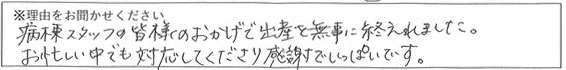 ※理由をお聞かせください
病棟スタッフの皆様のおかげで出産を無事に終えれました。
お忙しい中でも対応してくださり感謝でいっぱいです。